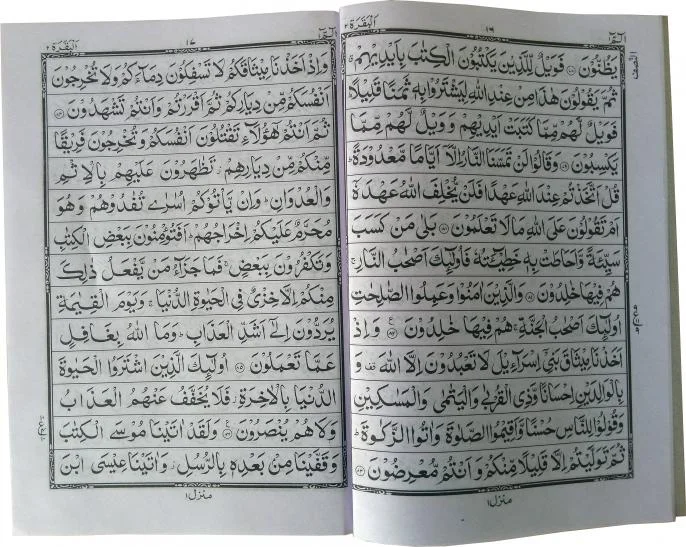 الٓمّٓ ١
١٦
البقرة ٢
يَظُنُّوْنَ ﴿۷۸﴾ فَوَيْلٌ لِّلَّذِيْنَ يَكْتُبُوْنَ الْكِتٰبَ بِاَيْدِيْهِمْ
ثُمَّ يَقُوْلُوْنَ هٰذَا مِنْ عِنْدِ اللّٰهِ لِيَشْتَرُوْا بِهٖ ثَمَنًا قَلِيْلًا
فَوَيْلٌ لَّهُمْ مِّمَّا كَتَبَتْ اَيْدِيْهِمْ وَوَيْلٌ لَّهُمْ مِّمَّا
يَكْسِبُوْنَ ﴿۷۹﴾ وَقَالُوْا لَنْ تَمَسَّنَا النَّارُ اِلَّاۤ اَيَّامًا مَّعْدُوْدَةً ؕ
قُلْ اَتَّخَذْتُمْ عِنْدَ اللّٰهِ عَهْدًا فَلَنْ يُّخْلِفَ اللّٰهُ عَهْدَهٗۤ
اَمْ تَقُوْلُوْنَ عَلَى اللّٰهِ مَا لَا تَعْلَمُوْنَ ﴿۸۰﴾ بَلٰى مَنْ كَسَبَ
سَيِّئَةً وَّاَحَاطَتْ بِهٖ خَطِيْٓئَتُهٗ فَاُولٰٓئِكَ اَصْحٰبُ النَّارِ ۚ
هُمْ فِيْهَا خٰلِدُوْنَ ﴿۸۱﴾ وَالَّذِيْنَ اٰمَنُوْا وَعَمِلُوا الصّٰلِحٰتِ
اُولٰٓئِكَ اَصْحٰبُ الْجَنَّةِ ۚ هُمْ فِيْهَا خٰلِدُوْنَ ﴿۸۲﴾ وَاِذْ
اَخَذْنَا مِيْثَاقَ بَنِيْۤ اِسْرَآءِيْلَ لَا تَعْبُدُوْنَ اِلَّا اللّٰهَ وَ
بِالْوَالِدَيْنِ اِحْسَانًا وَّذِي الْقُرْبٰى وَالْيَتٰمٰى وَالْمَسٰكِيْنِ
وَقُوْلُوْا لِلنَّاسِ حُسْنًا وَّاَقِيْمُوا الصَّلٰوةَ وَاٰتُوا الزَّكٰوةَ ؕ
ثُمَّ تَوَلَّيْتُمْ اِلَّا قَلِيْلًا مِّنْكُمْ وَاَنْتُمْ مُّعْرِضُوْنَ ﴿۸۳﴾
النصف
منزل ١
الٓمّٓ ١
١٧
البقرة ٢
وَاِذْ اَخَذْنَا مِيْثَاقَكُمْ لَا تَسْفِكُوْنَ دِمَآءَكُمْ وَلَا تُخْرِجُوْنَ
اَنْفُسَكُمْ مِّنْ دِيَارِكُمْ ثُمَّ اَقْرَرْتُمْ وَاَنْتُمْ تَشْهَدُوْنَ ﴿۸۴﴾
ثُمَّ اَنْتُمْ هٰۤؤُلَآءِ تَقْتُلُوْنَ اَنْفُسَكُمْ وَتُخْرِجُوْنَ فَرِيْقًا
مِّنْكُمْ مِّنْ دِيَارِهِمْ تَظٰهَرُوْنَ عَلَيْهِمْ بِالْاِثْمِ
وَالْعُدْوَانِ ؕ وَاِنْ يَّاْتُوْكُمْ اُسٰرٰى تُفٰدُوْهُمْ وَهُوَ
مُحَرَّمٌ عَلَيْكُمْ اِخْرَاجُهُمْ ؕ اَفَتُؤْمِنُوْنَ بِبَعْضِ الْكِتٰبِ
وَتَكْفُرُوْنَ بِبَعْضٍ ۚ فَمَا جَزَآءُ مَنْ يَّفْعَلُ ذٰلِكَ
مِنْكُمْ اِلَّا خِزْيٌ فِي الْحَيٰوةِ الدُّنْيَا ۚ وَيَوْمَ الْقِيٰمَةِ
يُرَدُّوْنَ اِلٰٓى اَشَدِّ الْعَذَابِ ؕ وَمَا اللّٰهُ بِغَافِلٍ
عَمَّا تَعْمَلُوْنَ ﴿۸۵﴾ اُولٰٓئِكَ الَّذِيْنَ اشْتَرَوُا الْحَيٰوةَ
الدُّنْيَا بِالْاٰخِرَةِ ۫ فَلَا يُخَفَّفُ عَنْهُمُ الْعَذَابُ
وَلَا هُمْ يُنْصَرُوْنَ ﴿۸۶﴾ وَلَقَدْ اٰتَيْنَا مُوْسَى الْكِتٰبَ
وَقَفَّيْنَا مِنْۢ بَعْدِهٖ بِالرُّسُلِ ۫ وَاٰتَيْنَا عِيْسَى ابْنَ
منزل ١